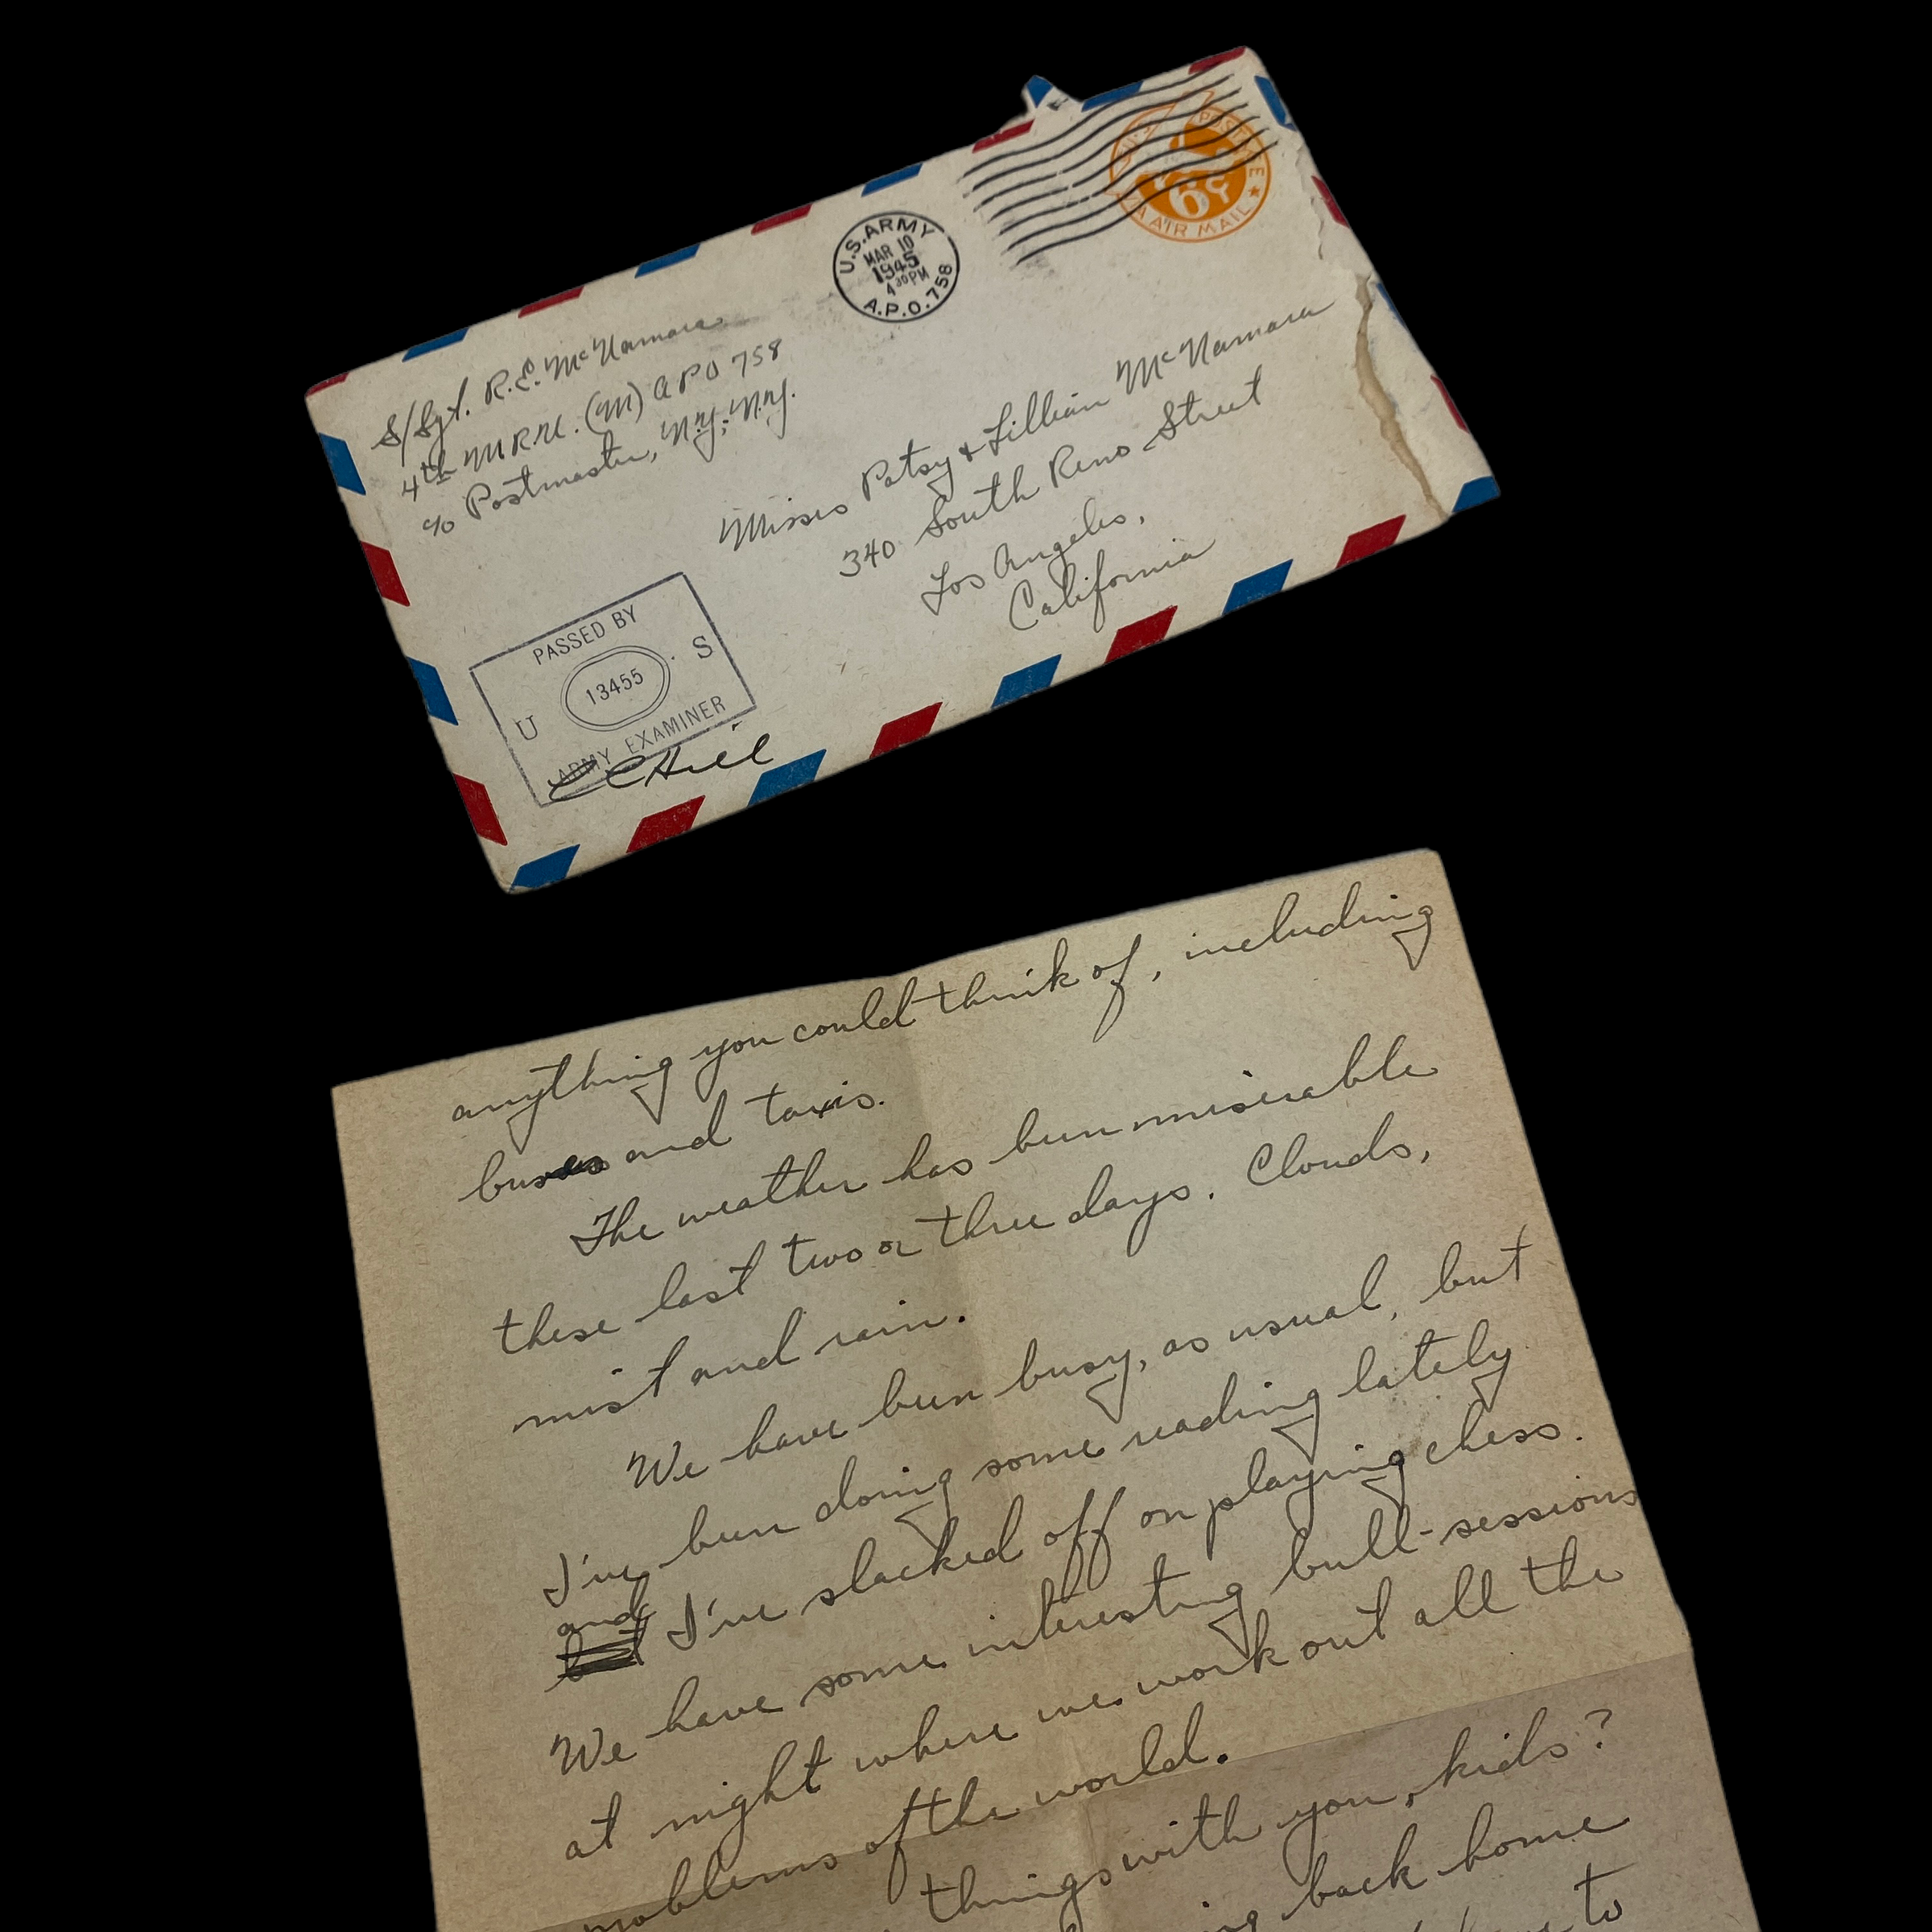 S/Sgt. R.E. McNamara
4th M.R.U. (M) APO 758
c/o Postmaster, N.Y., N.Y.
U.S. ARMY
MAR 10
1945
4 30 PM
A.P.O. 758
U.S. POSTAGE
6¢
VIA AIR MAIL
Misses Patsy & Lillian McNamara
340 South Reno Street
Los Angeles,
California
PASSED BY
U 13455 S
ARMY EXAMINER
anything you could think of, including
buses and taxis.
The weather has been miserable
these last two or three days. Clouds,
mist and rain.
We have been busy, as usual, but
I've been doing some reading lately
and
but I've slacked off on playing chess.
We have some interesting bull-sessions
at night where we work out all the
problems of the world.
things with you, kids?
back home
to